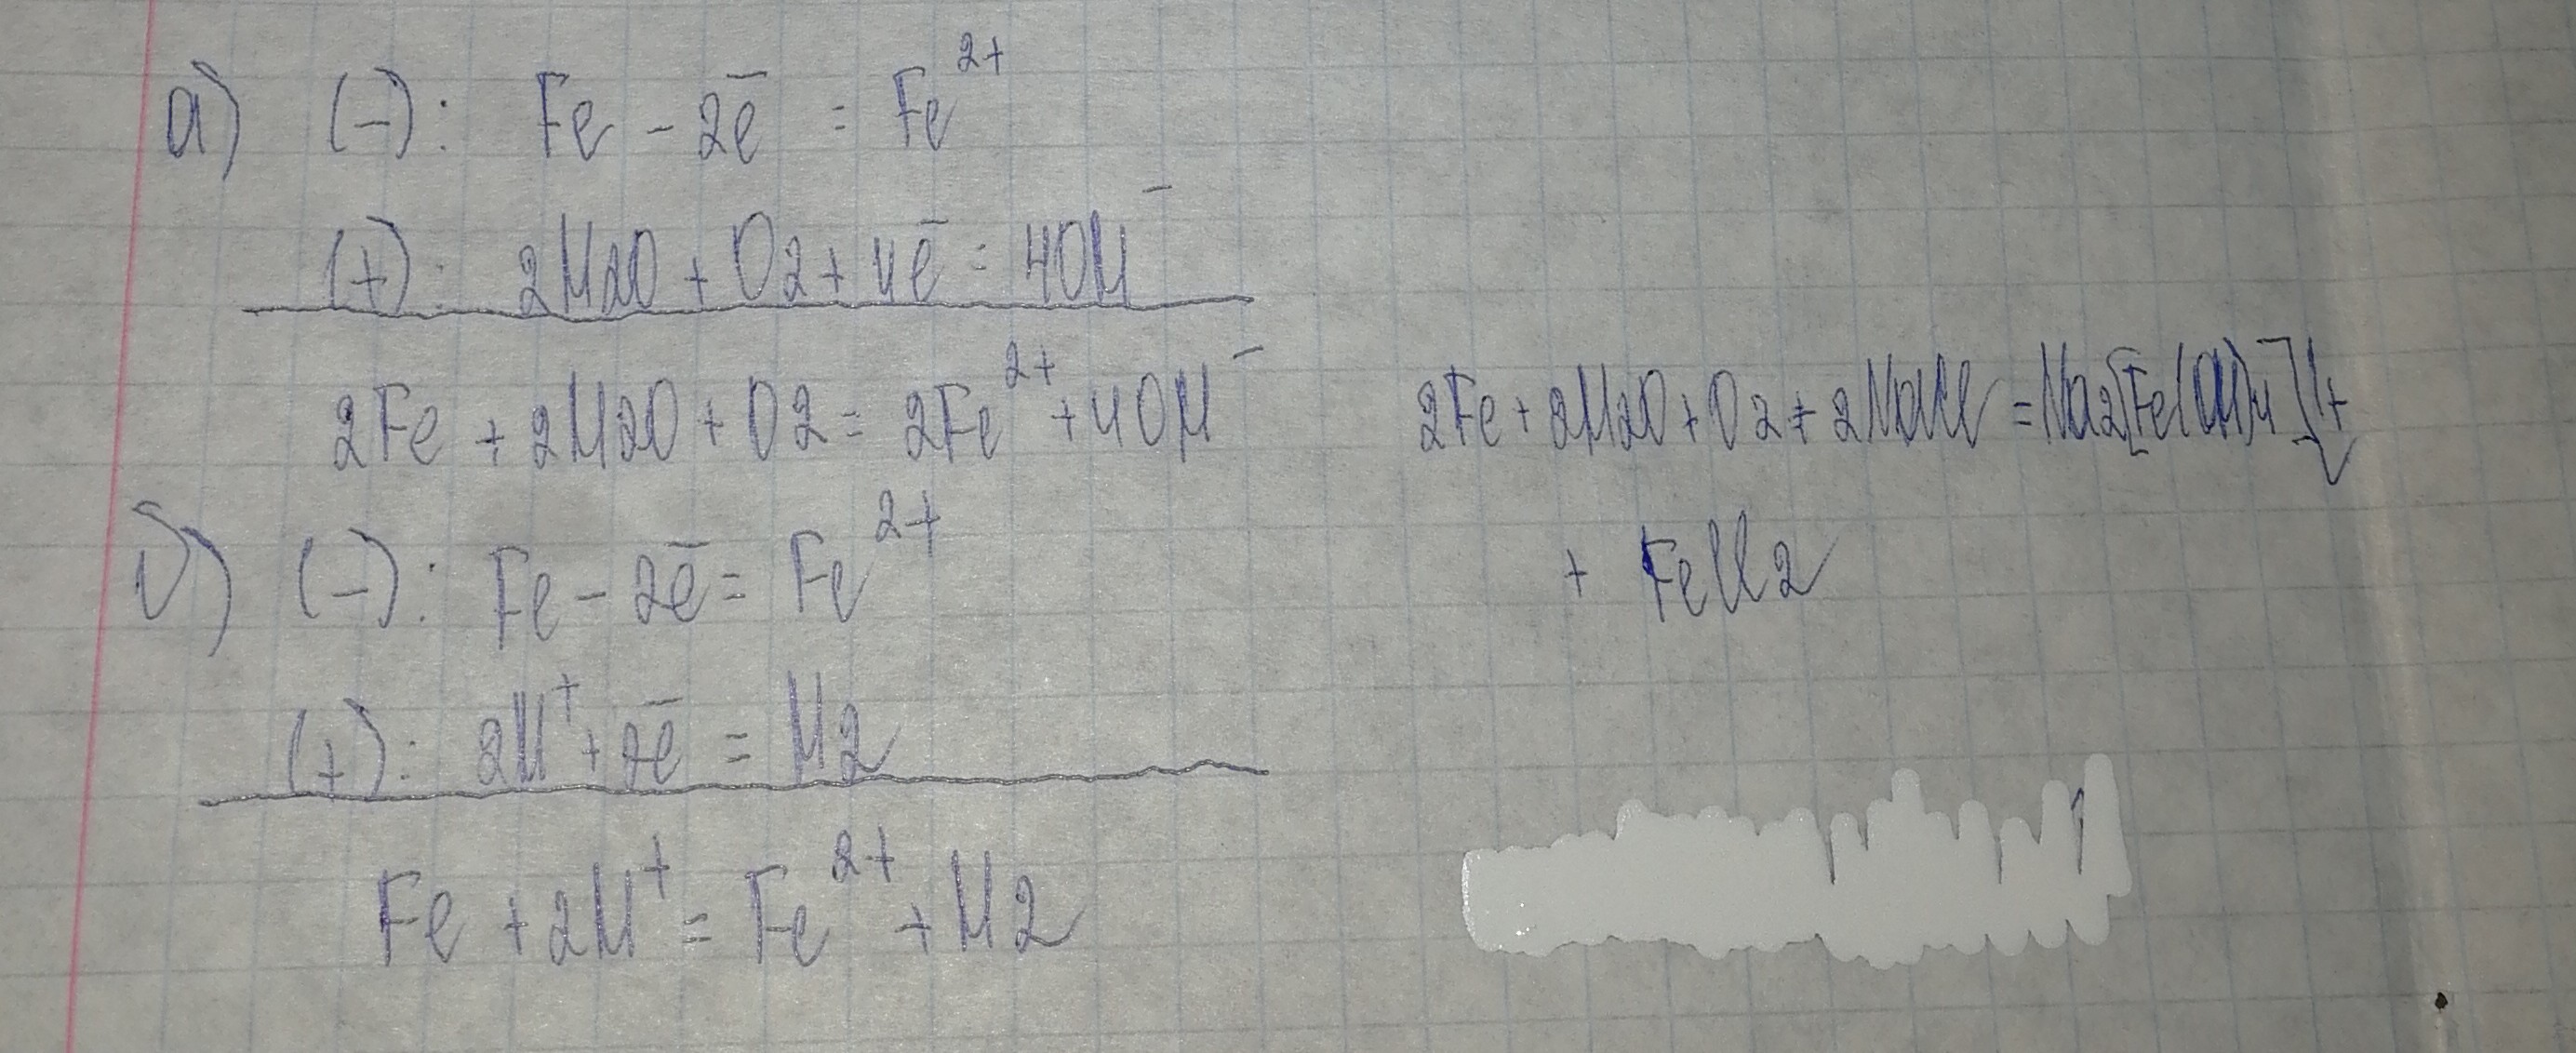 а) (-): Fe - 2ē = Fe²⁺
(+): 2H2O + O2 + 4ē = 4OH⁻
2Fe + 2H2O + O2 = 2Fe²⁺ + 4OH⁻
2Fe + 2H2O + O2 + 2NaCl = Na2[Fe(OH)4]↓ +
+ FeCl2
б) (-): Fe - 2ē = Fe²⁺
(+): 2H⁺ + 2ē = H2
Fe + 2H⁺ = Fe²⁺ + H2